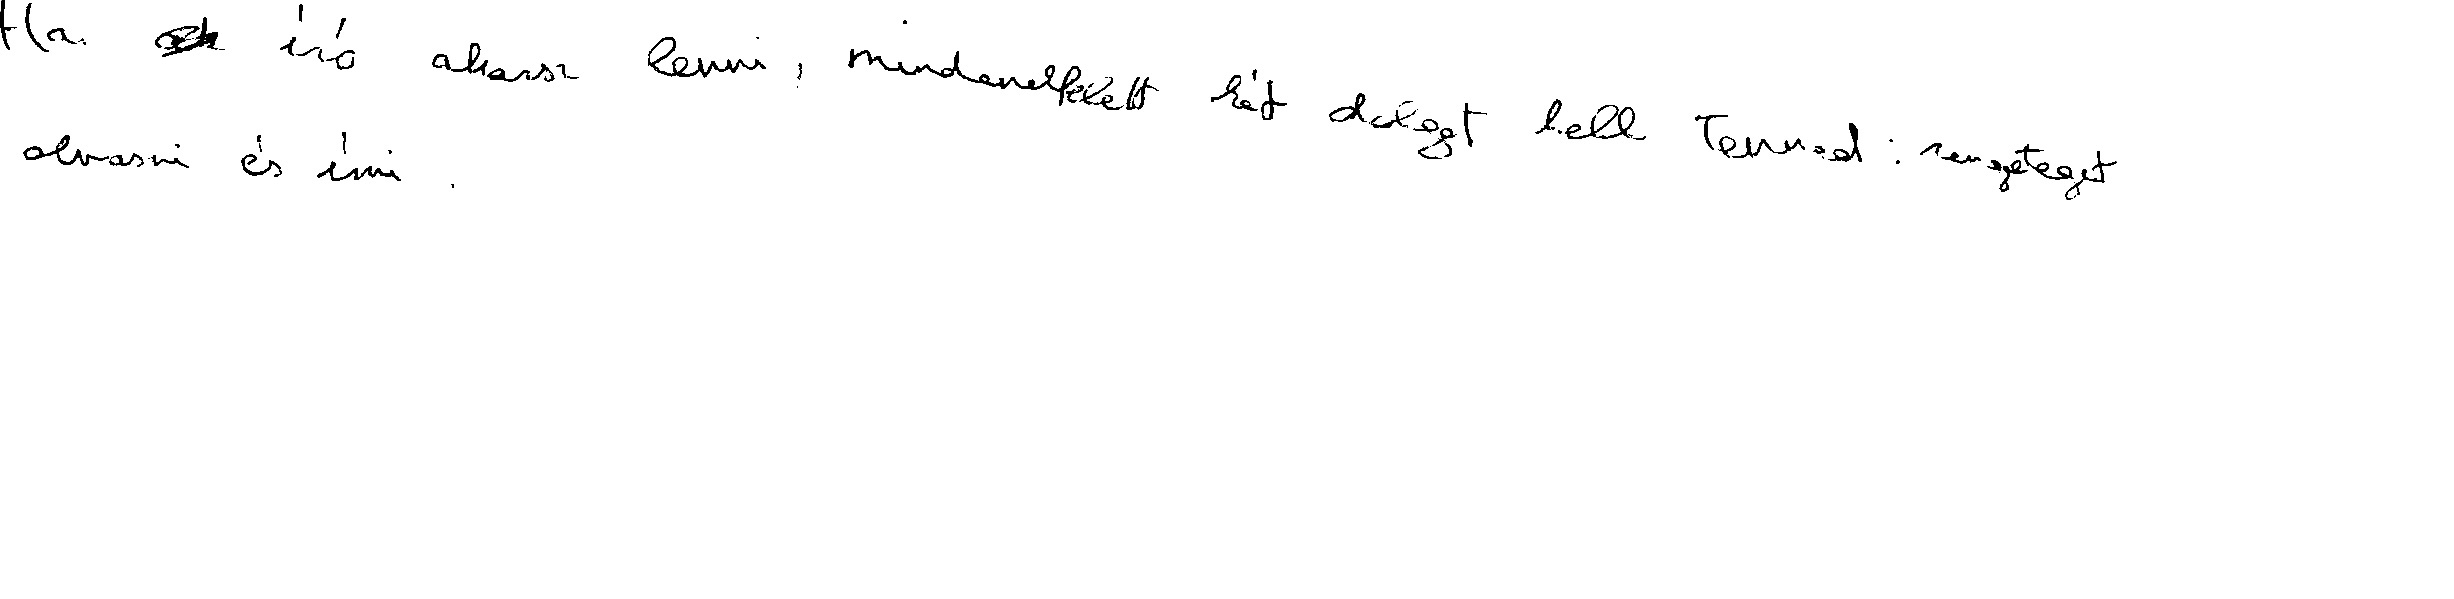 Ha író akarsz lenni, mindenekfelett két dolgot kell tenned: rengeteget
olvasni és írni.